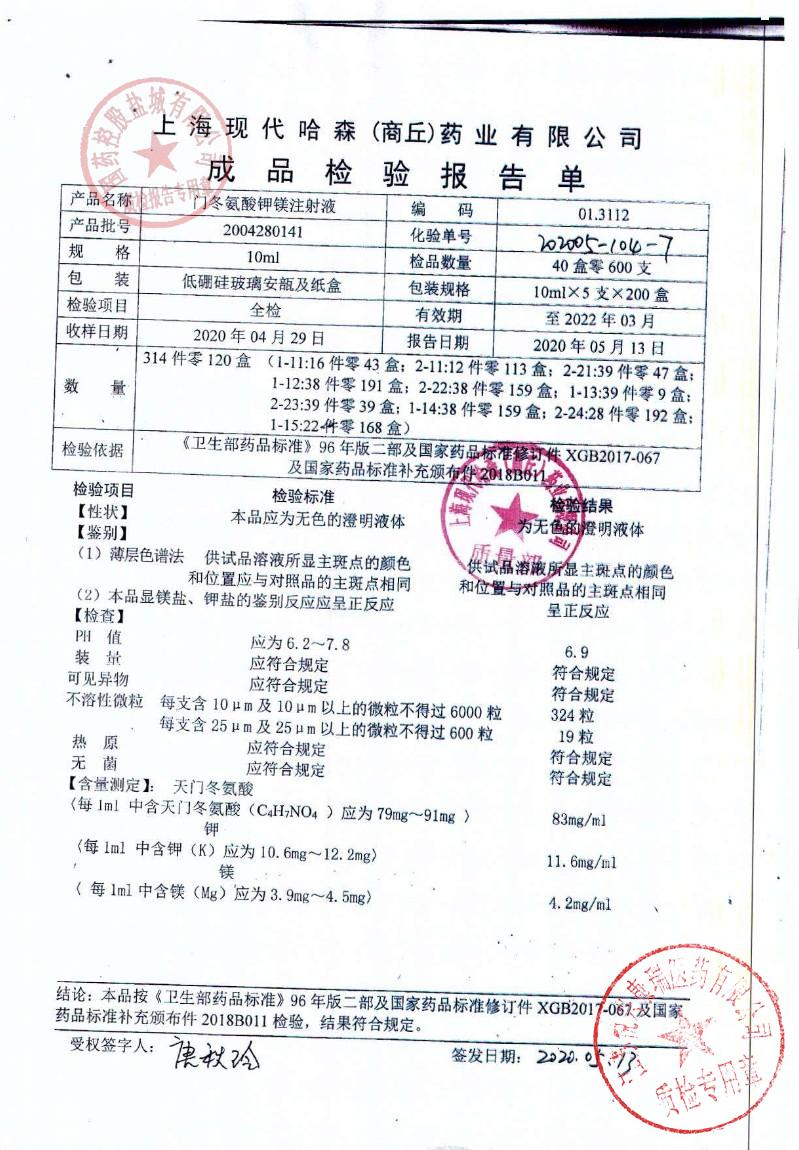 上海现代哈森(商丘)药业有限公司
成品检验报告单
产品名称 门冬氨酸钾镁注射液 编码 01.3112
产品批号 2004280141 化验单号 202005-104-7
规格 10ml 检品数量 40盒零600支
包装 低硼硅玻璃安瓿及纸盒 包装规格 10ml×5支×200盒
检验项目 全检 有效期 至2022年03月
收样日期 2020年04月29日 报告日期 2020年05月13日
数量 314件零120盒 (1-11:16件零43盒; 2-11:12件零113盒; 2-21:39件零47盒;
1-12:38件零191盒; 2-22:38件零159盒; 1-13:39件零9盒;
2-23:39件零39盒; 1-14:38件零159盒; 2-24:28件零192盒;
1-15:22件零168盒)
检验依据 《卫生部药品标准》96年版二部及国家药品标准修订件XGB2017-067
及国家药品标准补充颁布件2018B011
检验项目 检验标准 检验结果
【性状】 本品应为无色的澄明液体 为无色的澄明液体
【鉴别】
(1)薄层色谱法 供试品溶液所显主斑点的颜色 供试品溶液所显主斑点的颜色
和位置应与对照品的主斑点相同 和位置与对照品的主斑点相同
(2)本品显镁盐、钾盐的鉴别反应应呈正反应 呈正反应
【检查】
PH 值 应为6.2～7.8 6.9
装量 应符合规定 符合规定
可见异物 应符合规定 符合规定
不溶性微粒 每支含10μm及10μm以上的微粒不得过6000粒 324粒
每支含25μm及25μm以上的微粒不得过600粒 19粒
热原 应符合规定 符合规定
无菌 应符合规定 符合规定
【含量测定】: 天门冬氨酸
〈每1ml中含天门冬氨酸(C4H7NO4 )应为79mg～91mg 〉 83mg/ml
钾
〈每1ml 中含钾(K)应为10.6mg～12.2mg〉 11.6mg/ml
镁
〈 每1ml中含镁(Mg)应为3.9mg～4.5mg〉 4.2mg/ml
结论: 本品按《卫生部药品标准》96年版二部及国家药品标准修订件XGB2017-067及国家
药品标准补充颁布件2018B011检验,结果符合规定。
受权签字人: 唐秋玲 签发日期: 2020.05.13
国药控股盐城有限公司
质检报告专用章
质量部
质检专用章